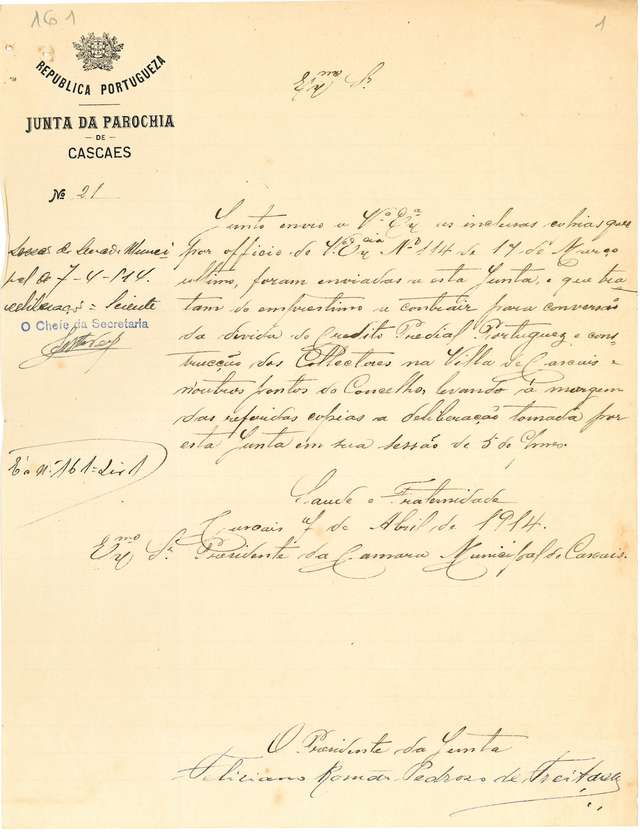 161
1
REPUBLICA PORTUGUEZA
JUNTA DA PAROCHIA
DE
CASCAES
Nº 21
Exmo Sr.
Junto envio a V.ª Exª as inclusas cobias que
por officio de V. Excia Nº 114 de 17 de Março
ultimo, foram enviadas a esta Junta, e que tra
tam do emprestimo a contrair para conversão
da divida do Credito Predial Portuguez e cons
trucção dos Collectores na Villa de Cascais e
noutros pontos do Concelho, levando á margem
das referidas cobias a deliberação tomada por
esta Junta em sua sessão de 5 do
Saude e Fraternidade
Cascais 7 de Abril de 1914.
Exmo Sr. Presidente da Camara Municipal de Cascais.
do Senado Munici
pal de 7-4-914.
deliberação = Sciente
O Chefe da Secretaria
Eª nº 161 - Liv 1
O Presidente da Junta
Feliciano Román Pedroso de Freitas